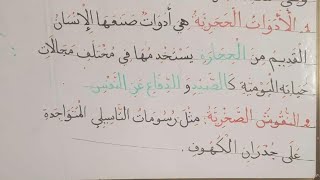 1. الْأَدَوَاتُ الْحَجَرِيَّةُ هِيَ أَدَوَاتٌ صَنَعَهَا الْإِنْسَانُ
الْقَدِيمُ مِنَ الْحِجَارَةِ يَسْتَخْدِمُهَا فِي مُخْتَلَفِ مَجَالَاتِ
حَيَاتِهِ الْيَوْمِيَّةِ كَالصَّيْدِ وَ الدِّفَاعِ عَنِ النَّفْسِ.
النُّقُوشُ الصَّخْرِيَّةُ: مِثْلَ رُسُومَاتِ التَّاسِيلِي الْمُتَوَاجِدَةِ
عَلَى جُدْرَانِ الْكُهُوفِ.